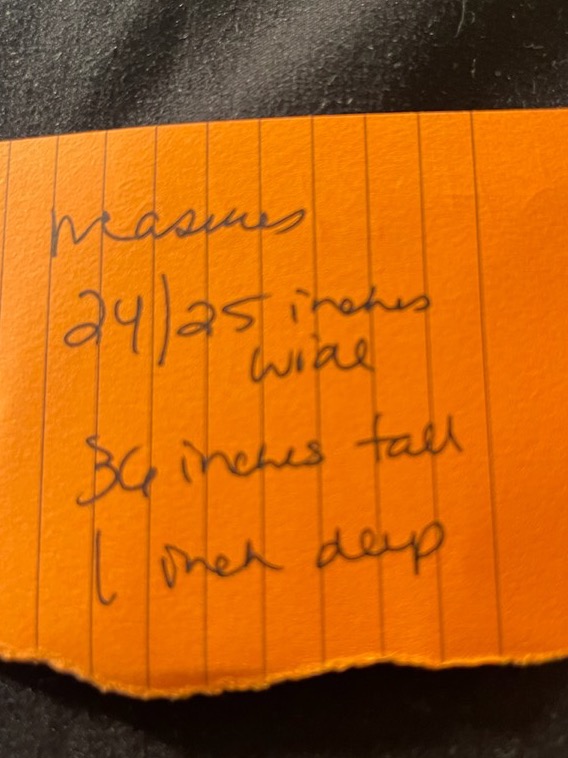 measures
24/25 inches
wide
36 inches tall
1 inch deep